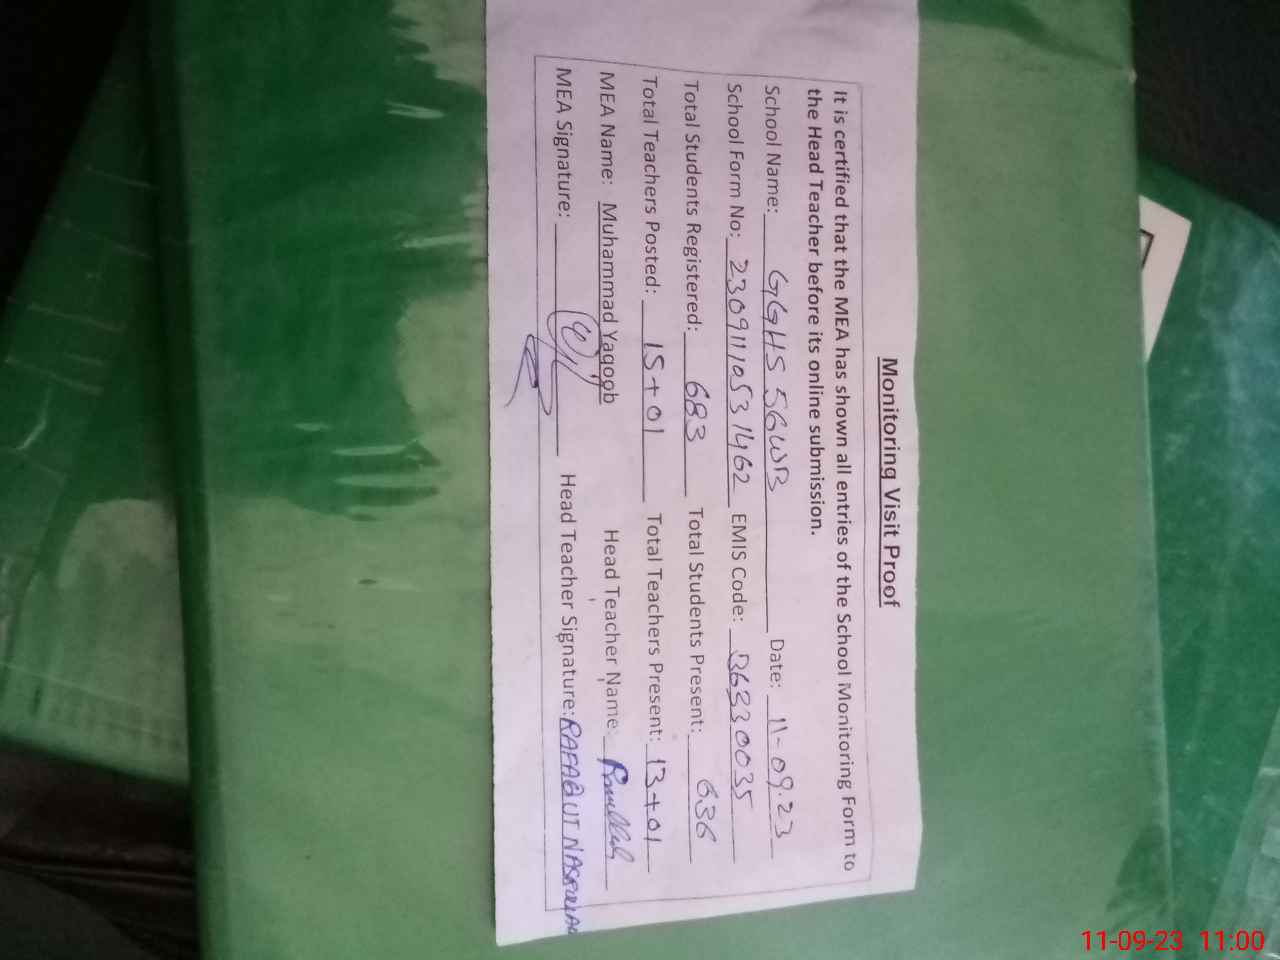 Monitoring Visit Proof
It is certified that the MEA has shown all entries of the School Monitoring Form to
the Head Teacher before its online submission.
School Name: GGHS 56WB Date: 11-09.23
School Form No: 23091110531462 EMIS Code: 36330035
Total Students Registered: 683 Total Students Present: 636
Total Teachers Posted: 15+01 Total Teachers Present: 13+01
MEA Name: Muhammad Yaqoob Head Teacher Name:
MEA Signature: Head Teacher Signature:
11-09-23 11:00